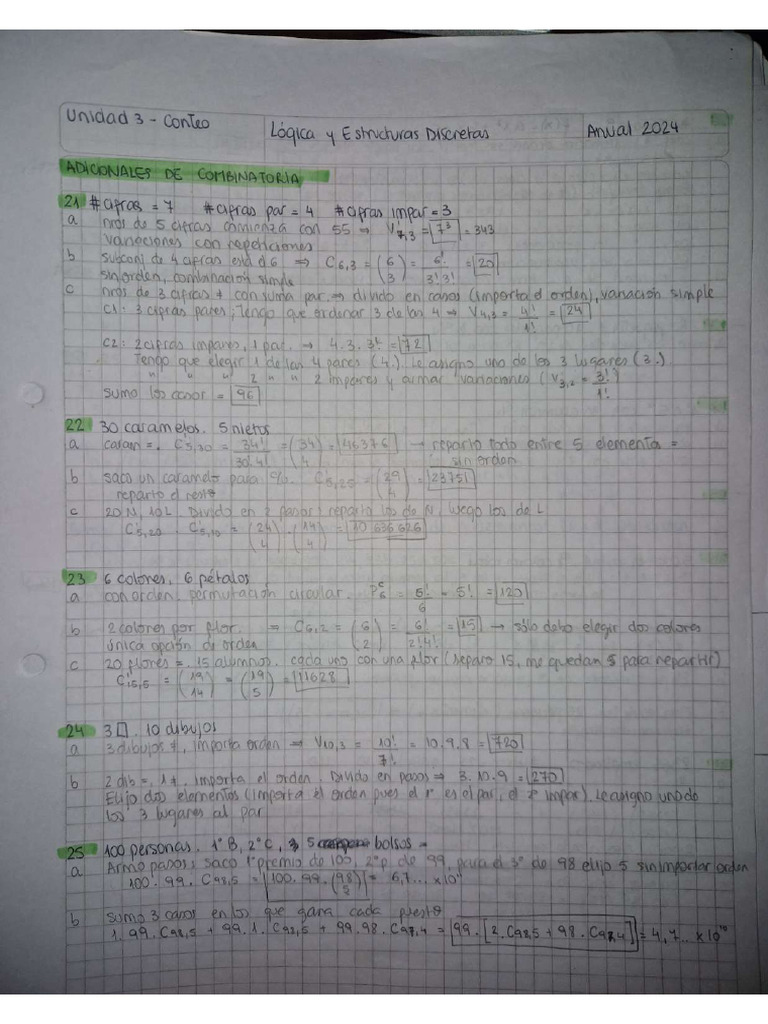 Unidad 3 - Conteo
Lógica y Estructuras Discretas
Anual 2024
ADICIONALES DE COMBINATORIA
21 # cifras = 7 # cifras par = 4 # cifras impar = 3
a nros de 5 cifras comienza con 55 ⇒ V'7,3 = 7³ = 343
variaciones con repeticiones
b subconj de 4 cifras está el 6 ⇒ C6,3 = (6 3) = 6!/3!3! = 20
sin orden, combinación simple
c nros de 3 cifras ≠ con suma par ⇒ divido en casos (importa el orden), variación simple
C1: 3 cifras pares, Tengo que ordenar 3 de las 4 ⇒ V4,3 = 4!/1! = 24
C2: 2 cifras impares, 1 par. → 4.3.3! = 72
Tengo que elegir 1 de las 4 pares (4.). Le asigno uno de los 3 lugares (3.)
" " " 2 " " 2 impares y armar variaciones (V3,2 = 3!/1!)
sumo los casos = 96
22 30 caramelos. 5 nietos
a C'5,30 = 34!/30!4! = (34 4) = 46376 → reparto todo entre 5 elementos =
sin orden
b saco un caramelo para c/u. C'5,25 = (29 4) = 23751
reparto el resto
c 20 N, 10 L. Divido en 2 pasos, reparto los de N, luego los de L
C'5,20 . C'5,10 = (24 4) . (14 4) = 10 636 626
23 6 colores, 6 pétalos
a con orden. permutación circular. P6ᶜ = 6!/6 = 5! = 120
b 2 colores por flor. ⇒ C6,2 = (6 2) = 6!/2!4! = 15 → sólo debo elegir dos colores
única opción de orden
c 20 flores =. 15 alumnos. cada uno con una flor (separo 15, me quedan 5 para repartir)
C'15,5 = (19 14) = (19 5) = 11628
24 3 □. 10 dibujos
a 3 dibujos ≠, importa orden ⇒ V10,3 = 10!/7! = 10.9.8 = 720
b 2 dib =, 1 ≠. importa el orden. Divido en pasos ⇒ 3.10.9 = 270
Elijo dos elementos (importa el orden pues el 1º es el par, el 2º impar). Le asigno uno de
los 3 lugares al par
25 100 personas. 1º B, 2º C, 3º 5 bolsos =
a Armo pasos: saco 1º premio de 100, 2º p de 99, para el 3º de 98 elijo 5 sin importar orden
100 . 99 . C98,5 = 100 . 99 . (98 5) = 6,7... × 10¹¹
b sumo 3 casos en los que gana cada puesto
1 . 99 . C98,5 + 99 . 1 . C98,5 + 99 . 98 . C97,4 = 99 . [2 . C98,5 + 98 . C97,4] = 4,7.. × 10¹⁰